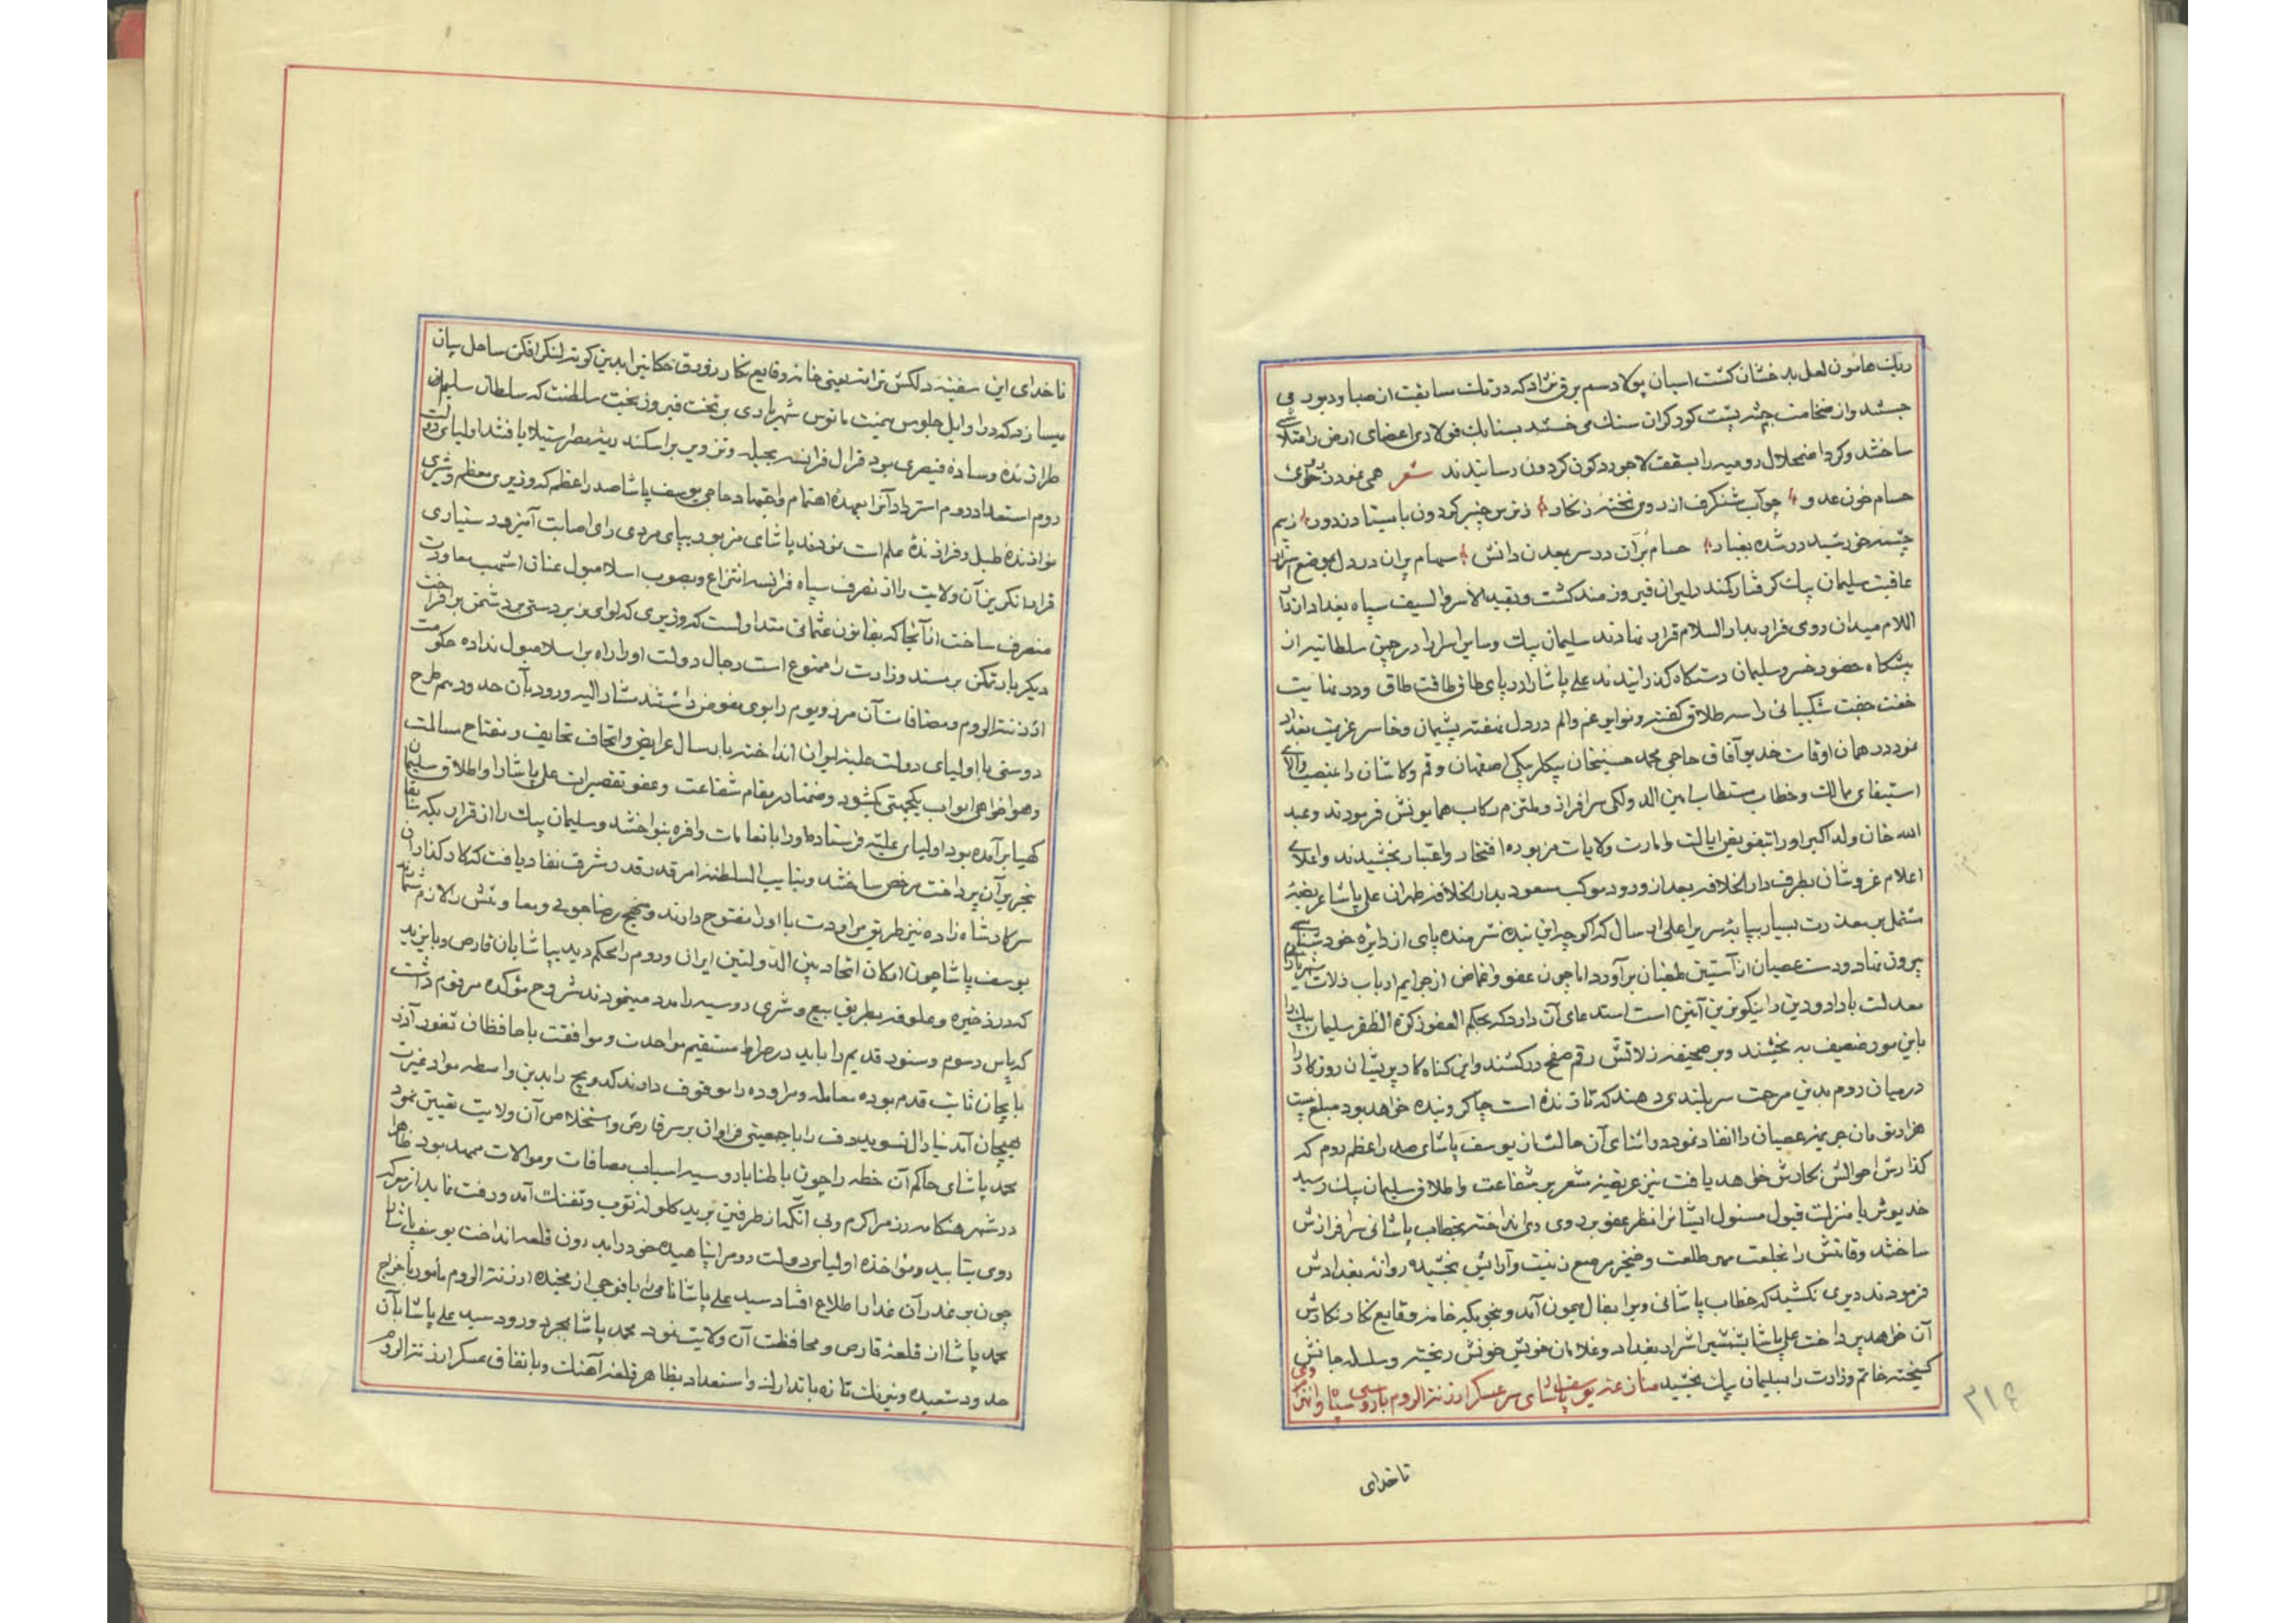 ریک هامون لعل بدخشان کشت اسبان پولاد سم برق نژاد که در تک سابقت از صبا و دبور می
جستند و از ضخامت جثه پشت کوه کران سنک می خستند بسنابک فولادی اعضای ارض را متلاشی
ساختند و کرد اضمحلال رومیه را بسقف لاجورد کون کردون رسانیدند شعر همی نمود
حسام خون عدو چو آب شنکرف از روی تخته زنکار ز ترس چنبر کردون بایستاد ز دور ز بیم
چشمه خورشید در شده بغبار حسام بران در سر بمعدن دانش سهام پران در دل بموضع اسرار
عاقبت سلیمان بیک کرفتار کمند دلیران فیروزمند کشت و بقید الاسر والسیف سپاه بغداد از
میدان روی فرار بدار السلام قرار نهادند سلیمان بیک و سایر اسرا را در چمن سلطانیه از
پیشکاه حضور خسرو سلیمان دستکاه کذرانیدند علی پاشا را در پای طاق طاقت طاق و در نهایت
خفت جفت شکیبائی را سه طلاق کفته و نوایر غم و الم در دل نهفته پشیمان و خاسر عزیمت بغداد
نمود در همان اوقات خدیو آفاق حاجی محمد حسینخان بیکلربیکی اصفهان و قم و کاشان را بمنصب والای
استیفای ممالک و خطاب مستطاب امین الدولکی سرافراز و ملتزم رکاب همایونش فرمودند و عبد
الله خان ولد اکبر او را بتفویض ایالت و امارت ولایات مزبوره افتخار و اعتبار بخشیدند و اعلای
اعلام عز و شان بطرف دار الخلافه بعد از ورود موکب مسعود بدار الخلافه طهران علی پاشا عریضه
مشتمل بر معذرت بسیار بپایه سریر اعلی ارسال که اکرچه این بنده شرمنده پای از دایره خود شناسی
بیرون نهاد و دست عصیان از آستین طغیان برآورد اما چون عفو و اغماض از جرایم ارباب ذلات شهریاران
معدلت بادا و دین را نیکوترین آئین است استدعای آن دارد که بحکم العفو زکوة الظفر سلیمان بیک را
باین مور ضعیف به بخشند و بر صحیفه زلاتش رقم صفح درکشند و این کناه کار پریشان روزکار را
در میان روم بدین مرحمت سربلندی دهند که تا زنده است چاکر و بنده خواهد بود مبلغ بیست
هزار تومان جریمه عصیان را انفاد نمود در اثنای آن حالت از یوسف پاشای صدر اعظم روم که
کذارش احوالش نکارش خواهد یافت نیز عریضه مشعر بر شفاعت و اطلاق سلیمان بیک رسید
خدیو ش یا منزلت قبول مسئول ایشانرا نظر عفو بر وی انداخته بخطاب پاشائی سرافرازش
ساختند و قامتش را بخلعت مهر طلعت و خنجر مرصع زینت و آرایش بخشیده روانه بغدادش
فرمودند دیری نکشید که خطاب پاشائی ویرا بفال میمون آمد و بنحویکه خامه وقایع نکار نکارش
آن خواهد پرداخت علی پاشا بشمشیر اشرار بغداد و غلامان خویش خونش ریخته و سلسله جانش
کسیخته خاتم وزارت را بسلیمان پیک بخشید منازعه یوسف پاشای سرعسکر ارزنة الروم با روسی
ناخدای
۳۱۶
ناخدای این سفینه دلکش ترانه یعنی خامه وقایع نکار زورق حکایت را بدین کونه لنکر افکن ساحل بیان
میسازد که در اوایل جلوس میمنت مانوس شهریاری بر تخت فیروز بخت سلطنت که سلطان سلیم خان
طرازنده وساده قیصری بود قرال فرانسه بحیله و تزویر بر اسکندریه مصر استیلا یافته اولیای دولت
روم استعداد روم استرداد آنرا بعهده اهتمام و اجتهاد حاجی یوسف پاشا صدر اعظم که وزیری معظم و مشیری
نوازنده طبل و فرازنده علم است نمودند پاشای مزبور بپای مردی رای اصابت آمیز و دستیاری
قرال انکریز آن ولایت را از تصرف سپاه فرانسه انتزاع و بصوب اسلامبول عنان اشهب معاودت
منصرف ساخت از آنجا که بقانون عثمانی متداولست که وزیری که لوای زبر دستی بر دشمن برافراخت
دیکر بار تمکن بر مسند وزارت را ممنوع است رجال دولت او را راه بر اسلامبول نداده حکومت
ارزنة الروم و مضافات آن مرز و بوم را بوی مفوض داشتند مشارالیه ورود بآن حدود هم طرح
دوستی با اولیای دولت علیه ایران انداخته بارسال عرایض و اتحاف تحایف و مفتاح مسالمت
و هواخواهی ابواب یکجهتی کشود و ضمنا در مقام شفاعت و عفو تقصیرات علی پاشا و اطلاق سلیمان
کهیا برآمده بود اولیای علیه فرستاده او را بانعامات وافره بنواختند و سلیمان بیک را از قرار یکه سابقا
تحریر آن پرداخت مرخص ساختند و بنایب السلطنه امر قدر قدرت شرف نفاد یافت که کارکذاران
سرکار شاه زاده نیز طریق مراودت با او را مفتوح دارند و منهج رضاجوئی و معاونتش را لازم شمارند
یوسف پاشا چون امکان اتحاد بین الدولتین ایران و روم را محکم دید بپاشایان قارص و بایزید
که در ذخیره و علوفه بطریق بیع و شری روسیه را مدد مینمودند شروح مؤکده مرقوم داشت
که پاس رسوم و سنود قدیم را باید در صراط مستقیم مواحدت و موافقت با حافظان ثغور آذر
بایجان ثابت قدم بوده معامله و مراوده را موقوف دارند کدویچ را بدین واسطه مواد غیرت
بهیجان آمد نیارال نسویدوف را با جمعیتی فراوان بر سر قارص و استخلاص آن ولایت تعیین نمود
محمد پاشای حاکم آن خطه را چون باطنا با روسیه اسباب مصافات و موالات ممهد بود ظاهرا
در شهر هنکامه رزم را کرم و بی آنکه از طرفین برید کلوله توپ و تفنک آمد و رفت نماید از معرکه
روی بتابید و مؤاخذه اولیای دولت روم را پناهیده خود را بدرون قلعه انداخت یوسف پاشا را
چون بر غدر آن غدار اطلاع افتاد سید علی پاشا نامی را با فوجی از نخبه ارزنة الروم مامور باخراج
محمد پاشا از قلعه قارص و محافظت آن ولایت نمود محمد پاشا بمجرد ورود سید علی پاشا بآن
حدود شعبده و نیرنک تازه با تدارک و استعداد بظاهر قلعه آهنک و باتفاق عسکر ارزنة الروم